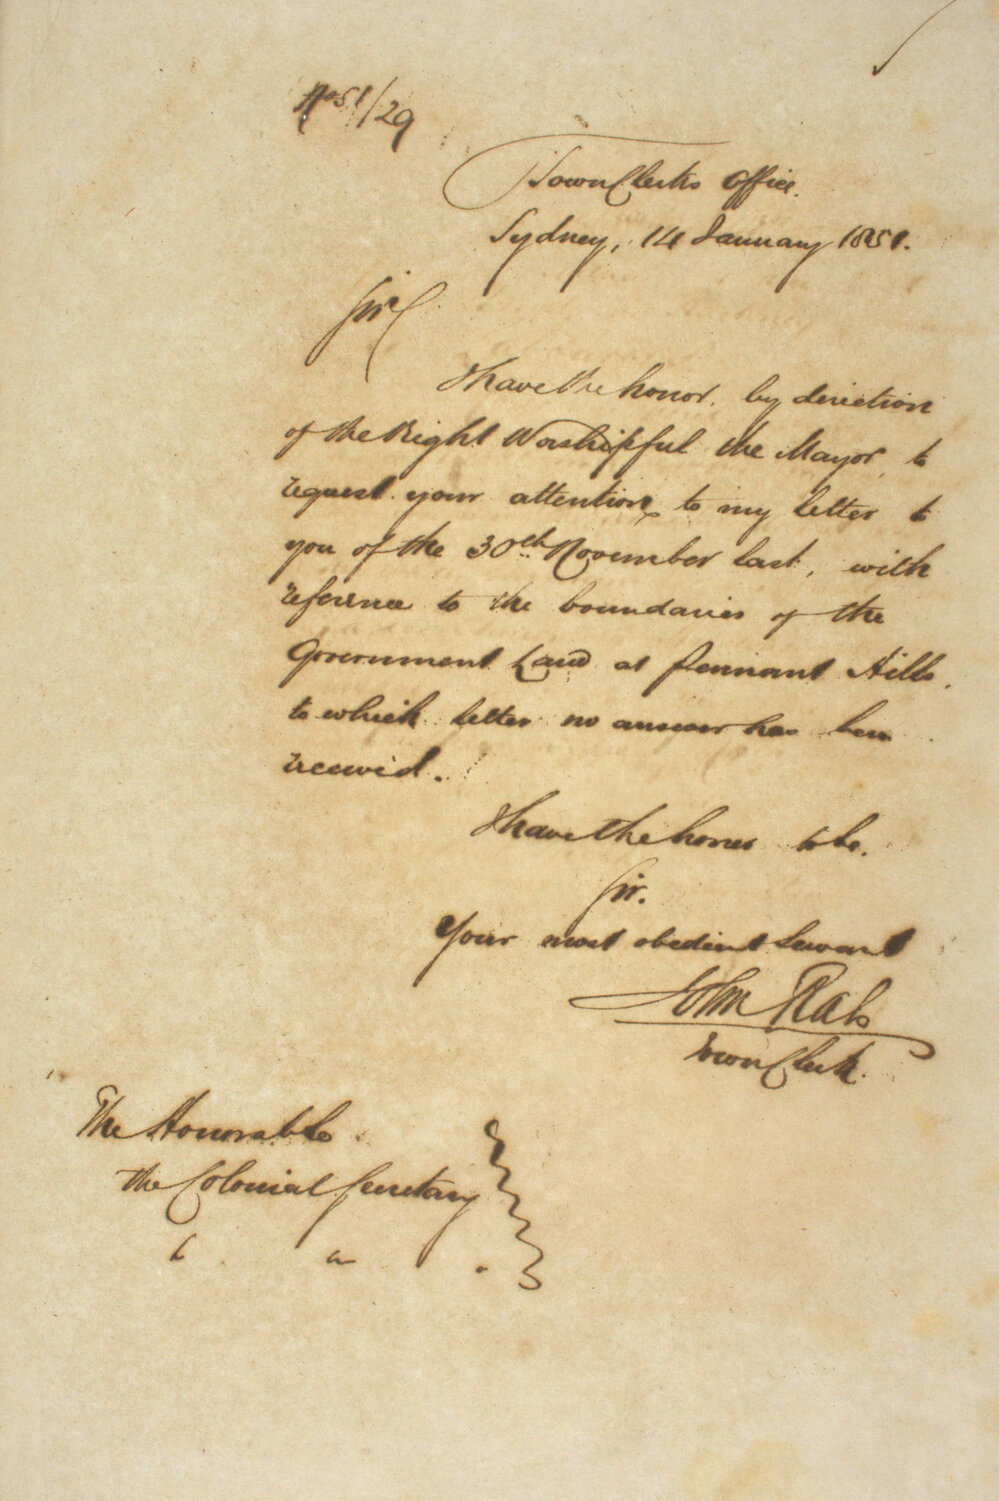 No 51/29
Town Clerks Office.
Sydney, 14 January 1851.
Sir
I have the honor, by direction
of the Right Worshipful the Mayor, to
request your attention to my letter to
you of the 30th November last, with
reference to the boundaries of the
Government Land at Pennant Hills,
to which letter no answer has been
received.
I have the honor to be,
Sir.
Your most obedient Servant
John Rae
Town Clerk.
The Honorable
the Colonial Secretary